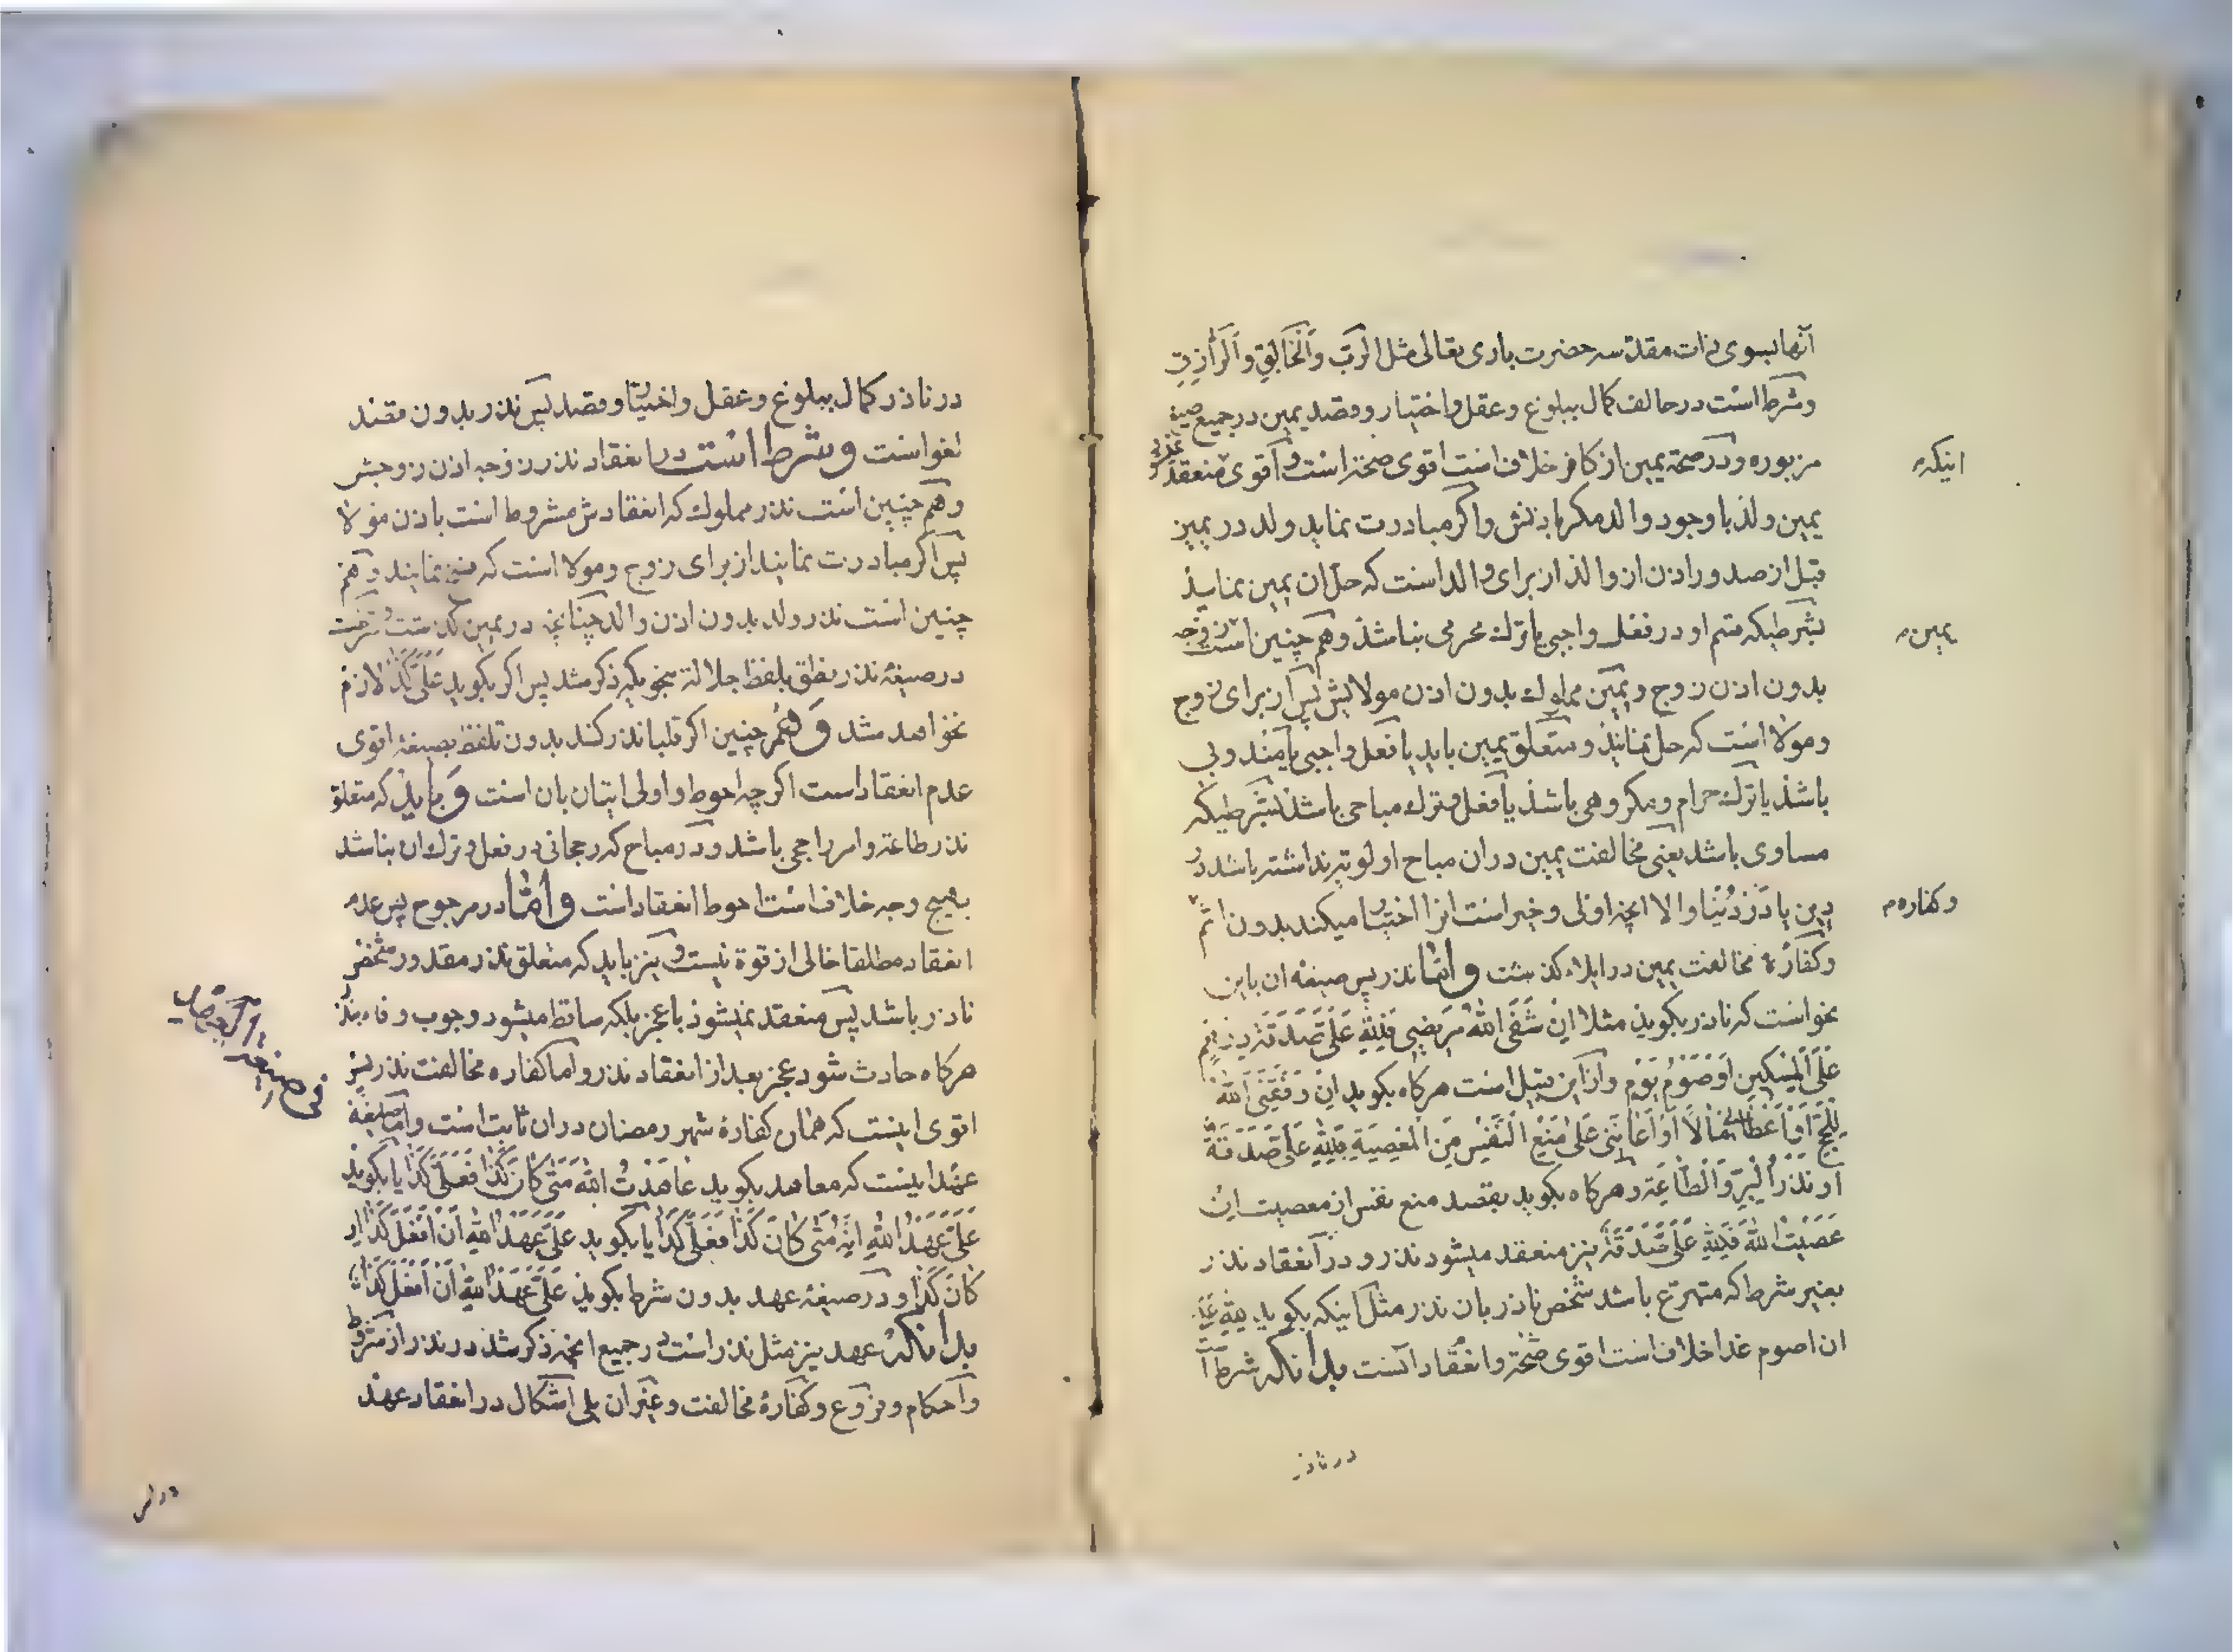 آنها بسوی ذات مقدسه حضرت باری تعالی مثل الرَبّ وَالْخَالِقِ وَالرَّازِقِ
و شرط است در حالف کمال ببلوغ و عقل و اختیار و قصد یمین در جمیع صیغ
مزبوره و در صحة یمین از کافر خلاف است اقوی صحة است و اقوی منعقد
اینکه
یمین ولد با وجود والد مکر باذنش و اکر مبادرت نماید ولد در یمین
قبل از صدور اذن از والد از برای والد است که حل ان یمین نماید
بشرطیکه قسم او در فعل واجبی یا ترک محرمی نباشد و هم چنین است زوجه
یمین
بدون اذن زوج و یمین مملوک بدون اذن مولایش پس از برای زوج
و مولا است که حل نمایند و متعلق یمین باید یا فعل واجبی یا مندوبی
باشد یا ترک حرام و مکروهی باشد یا فعل و ترک مباحی باشد بشرطیکه
مساوی باشد یعنی مخالفت یمین در ان مباح اولویتر نداشته باشد در
دین یا در دُنیا و الا انچه اولی و خیر است انرا اختیار میکند بدون اثم
و کفاره
و کفارهٔ مخالفت یمین در ایلاء کذشت و امّا نذر پس صیغه ان باین
نحو است که ناذر بکوید مثلا اِنْ شَفَی اللهُ مَرَیضِی فَلِلّهِ عَلَیَّ صَدَقَة دِرْهَمٍ
عَلَی الْمِسْکِینِ اَوْ صَوْمُ یَوْمٍ و از این قبیل است هرکاه بکوید اِنْ وَفَّقَنِیَ اللهُ
لِلْحَجِّ اَوْ اَعْطَانِی مَالاً اَوْ اَعَانَنِی عَلی مَنْعِ النَّفْسِ مِنَ الْمَعْصِیَةِ فَلِلّهِ عَلَیَّ صَدَقَةٌ
اَوْ نَذْرُ الْبِرِّ وَالْطَّاعَةِ و هرکاه بکوید بقصد منع نفس از معصیت اِنْ
عَصَیْتُ اللهَ فَلِلّهِ عَلَیَّ صَدَقَةٌ نیز منعقد میشود نذر و در انعقاد نذر
بغیر شرط که متبرع باشد شخص ناذر بان نذر مثل اینکه بکوید لِلّهِ عَلَیَّ
ان اصوم غدا خلاف است اقوی صحّة و انعقاد است بدانکه شرط است
در ناذر
در ناذر کمال ببلوغ و عقل و اختیار و قصد پس نذر بدون قصد
لغو است و شرط است در انعقاد نذر زوجه اذن زوجش
و هم چنین است نذر مملوک که انعقادش مشروط است باذن مولا
پس اکر مبادرت نمایند از برای زوج و مولا است که فسخ نمایند و هم
چنین است نذر ولد بدون اذن والد چنانچه در یمین کذشت و شرط است
در صیغهٔ نذر نطق بلفظ جلاله بنحویکه ذکر شد پس اکر بکوید عَلَیَّ کَذَا لازم
نخواهد شد وَ هَم چنین اکر قلبا نذر کند بدون تلفظ بصیغه اقوی
عدم انعقاد است اکرچه احوط و اولی اتیان بان است وَ باید که متعلق
نذر طاعة و امر راجحی باشد و در مباح که رجحانی در فعل و ترک ان نباشد
بهیچ وجه خلاف است احوط انعقاد است و امّا در مرجوح پس عدم
انعقاد مطلقا خالی از قوة نیست و نیز باید که متعلق نذر مقدور شخص
ناذر باشد پس منعقد نمیشود با عجز بلکه ساقط میشود وجوب وفاء بنذر
هرکاه حادث شود عجز بعد از انعقاد نذر و اما کفاره مخالفت نذر پس
اقوی اینست که همان کفارهٔ شهر رمضان در ان ثابت است و اما صیغهٔ
فی صیغه العهد
عهد اینست که معاهد بکوید عَاهَدْتُ اللهَ مَتی کَانَ کَذَا فَعَلَیَّ کَذَا یا بکوید
عَلَیَّ عَهْدُ اللهِ اِنَّهُ مَتی کَانَ کَذَا فَعَلَیَّ کَذَا یا بکوید عَلَیَّ عَهْدُ اللهِ اَنْ اَفْعَلَ کَذَا اِنْ
کَانَ کَذَا و در صیغهٔ عهد بدون شرط بکوید عَلَیَّ عَهْدُ اللهِ اَنْ اَفْعَلَ کَذَا
بدانکه عهد نیز مثل نذر است در جمیع انچه ذکر شد در نذر از شروط
و احکام و فروع و کفارهٔ مخالفت و غیر ان بلی اشکال در انعقاد عهد